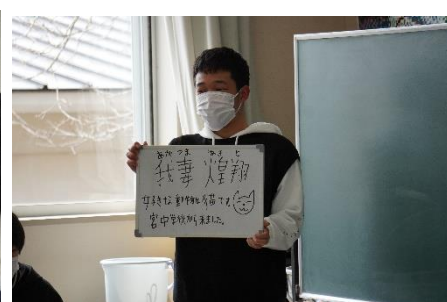 あがつま あきと
我妻 煌翔
好きな動物は猫です。
宮中学校から来ました。